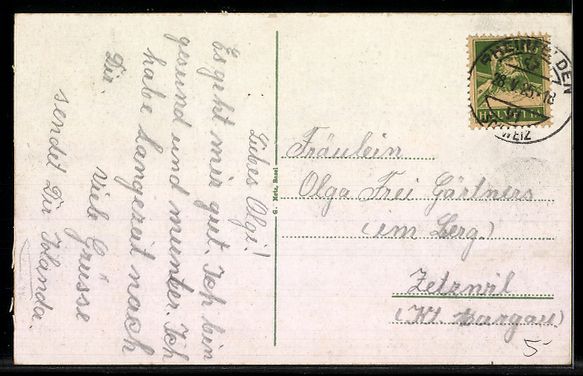 Liebes Olgi!
Es geht mir gut. Ich bin
gesund und munter. Ich
habe Langezeit nach
Dir.
Viele Grüsse
sendet Dir Wanda.
G. Metz, Basel
Fräulein
Olga Frei Gärtners
(im Berg.)
Zetzwil
(Kt Aargau)
HELVETIA
5-